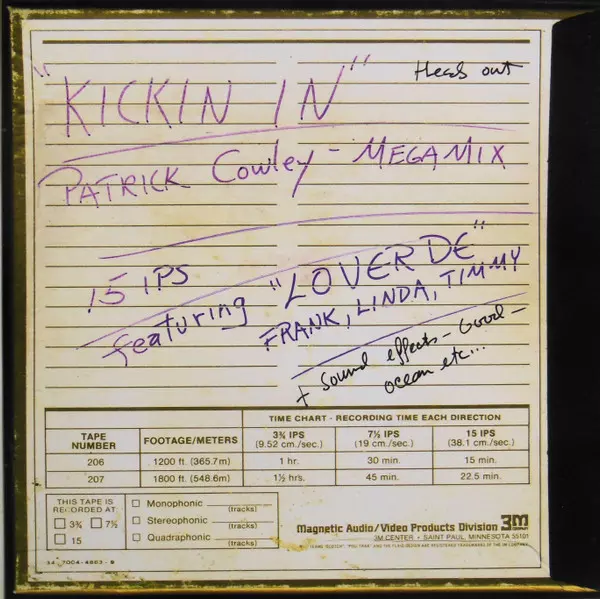 Heads out
"KICKIN IN"
PATRICK Cowley - MEGAMIX
15 IPS
featuring "LOVERDE"
FRANK, LINDA, TIMMY
+ Sound effects - Good -
ocean etc...
TIME CHART - RECORDING TIME EACH DIRECTION
TAPE NUMBER FOOTAGE/METERS 3¾ IPS (9.52 cm./sec.) 7½ IPS (19 cm./sec.) 15 IPS (38.1 cm./sec.)
206 1200 ft. (365.7m) 1 hr. 30 min. 15 min.
207 1800 ft. (548.6m) 1½ hrs. 45 min. 22.5 min.
THIS TAPE IS
RECORDED AT
3¾ 7½
15
Monophonic (tracks)
Stereophonic (tracks)
Quadraphonic (tracks)
Magnetic Audio/Video Products Division 3M COMPANY
3M CENTER • SAINT PAUL, MINNESOTA 55101
34-7004-4863-9